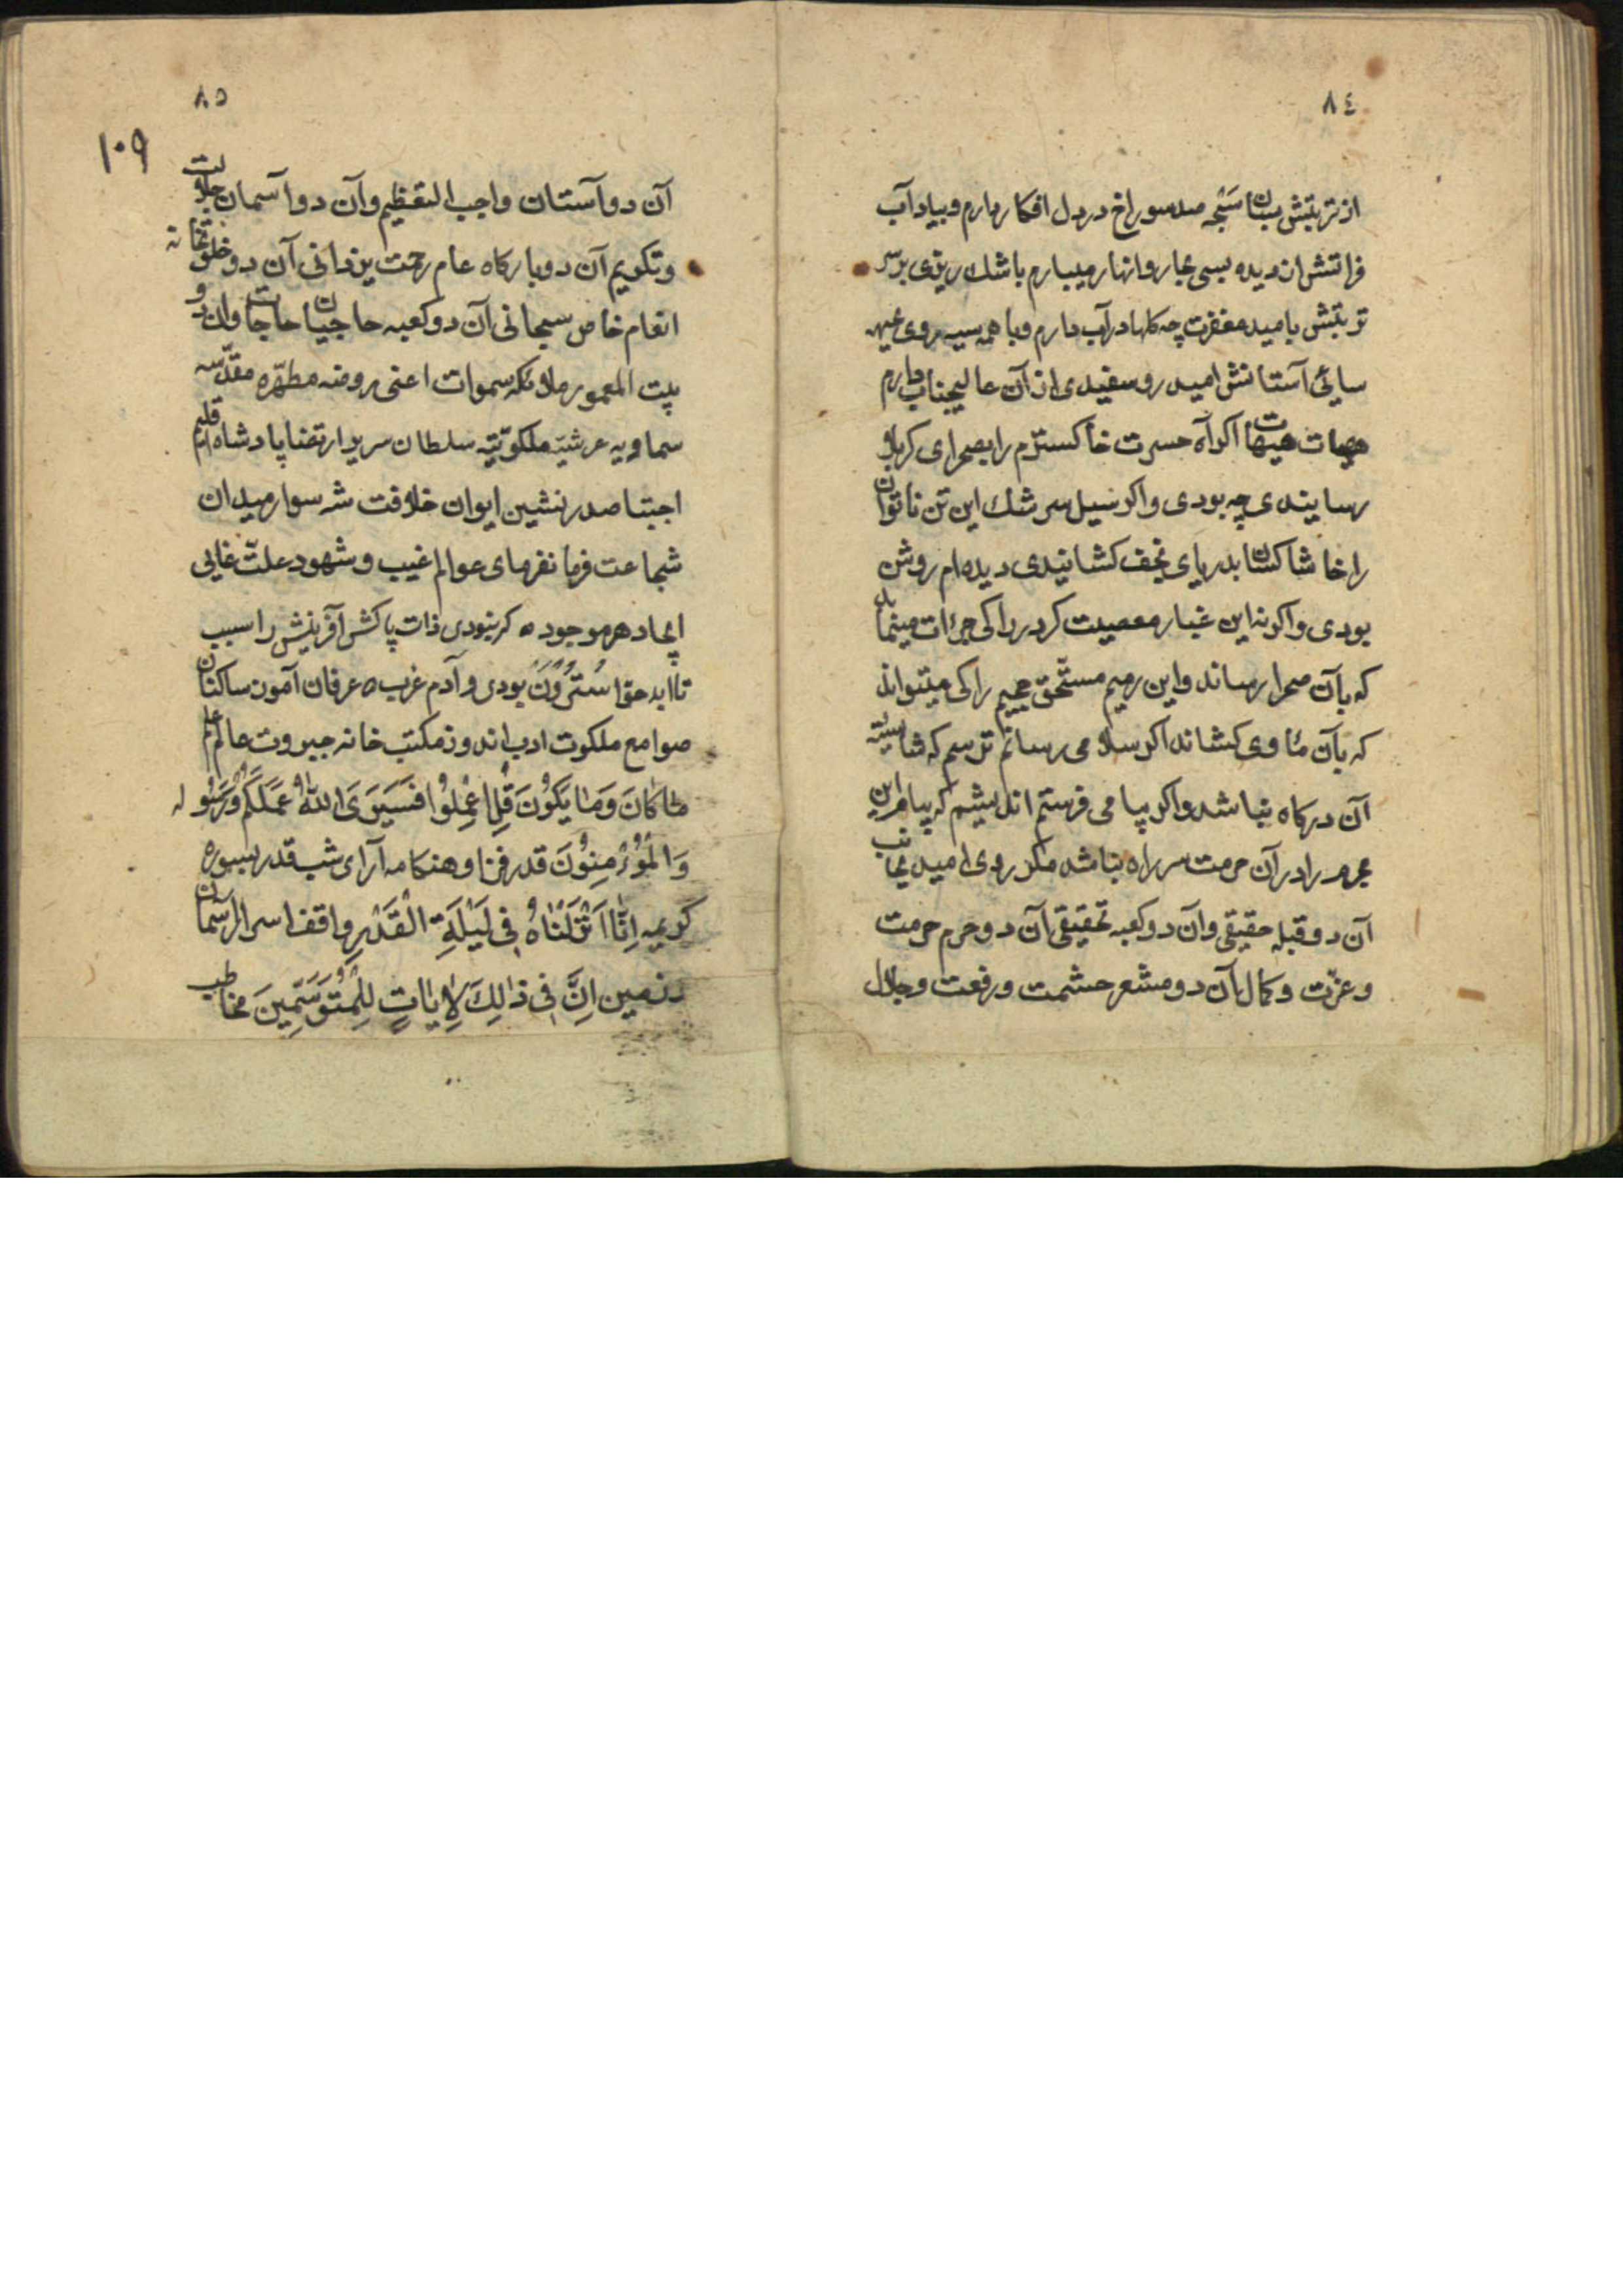 ٨٤
از تربتش بسان سبحه صد سوراخ در دل افکار دارم و بیاد آب
فراتش از دیده بسی بحار و انهار میبارم باشك ریزی بر سر
تربتش بامید مغفرت چه کلها در آب دارم و با همه سیه روی جبهه
سائی آستانش امید رو سفیدی از آن عالیجناب دارم
هیهات هیهات اکر آه حسرت خاکسترم را بصحرای کربلا
رسانیدی چه بودی و اکر سیل سرشك این تن ناتوان
را خاشاکسان بدریای نجف کشانیدی دیده ام روشن
بودی و اکر نه این غبار معصیت کرد را کی جرات مینماید
که بآن صحرا رساند و این رمیم مستحق جحیم را کی میتواند
که بآن ماوی کشاند اکر سلامی رسانم ترسم که شایسته
آن درکاه نباشد و اکر پیامی فرستم اندیشم که پیام این
مجرم را در آن حرمت سرا راه نباشد مکر روی امید بجانب
آن دو قبله حقیقی و آن دو کعبه تحقیقی آن دو حرم حرمت
و عزت و کمال آن دو مشعر حشمت و رفعت و جلال
٨٥
١٠٩
آن دو آستان واجب التعظیم و آن دو آسمان جلالت
و تکریم آن دو بارکاه عام رحمت یزدانی آن دو خلوتخانه
انعام خاص سبحانی آن دو کعبه حاجیان حاجات و ان دو
بیت المعمور ملائکه سموات اعنی روضه مطهره مقدسه
سماویه عرشیه ملکوتیه سلطان سریر ارتضا پادشاه اقلیم
اجتبا صدر نشین ایوان خلافت شه سوار میدان
شجاعت فرمانفرمای عوالم غیب و شهود علت غایی
ایجاد هر موجود ه کر نبودی ذات پاکش آفرینش را سبب
تا ابد حوا سترون بودی و آدم عزب ه عرفان آموز ساکنان
صوامع ملکوت ادب اندوز مکتب خانه جبروت عالم علم
ما کان وَمَا یَکُونَ قُلِ اعْمِلُوا فَسَیَرَی اللّهُ عَمَلَکُمْ وَرَسُولُه
وَالْمُؤْمِنُونَ قدر فزا و هنکامه آرای شب قدر بسوره
کریمه اِنَّا اَنْزَلْنَاهُ فِی لَیْلَةِ الْقَدْرِ واقف اسرار آسمان
و زمین اِنَّ فِی ذٰلِكَ لَاٰیَاتٍ لِلْمُتَوَسِّمِینَ مخاطب